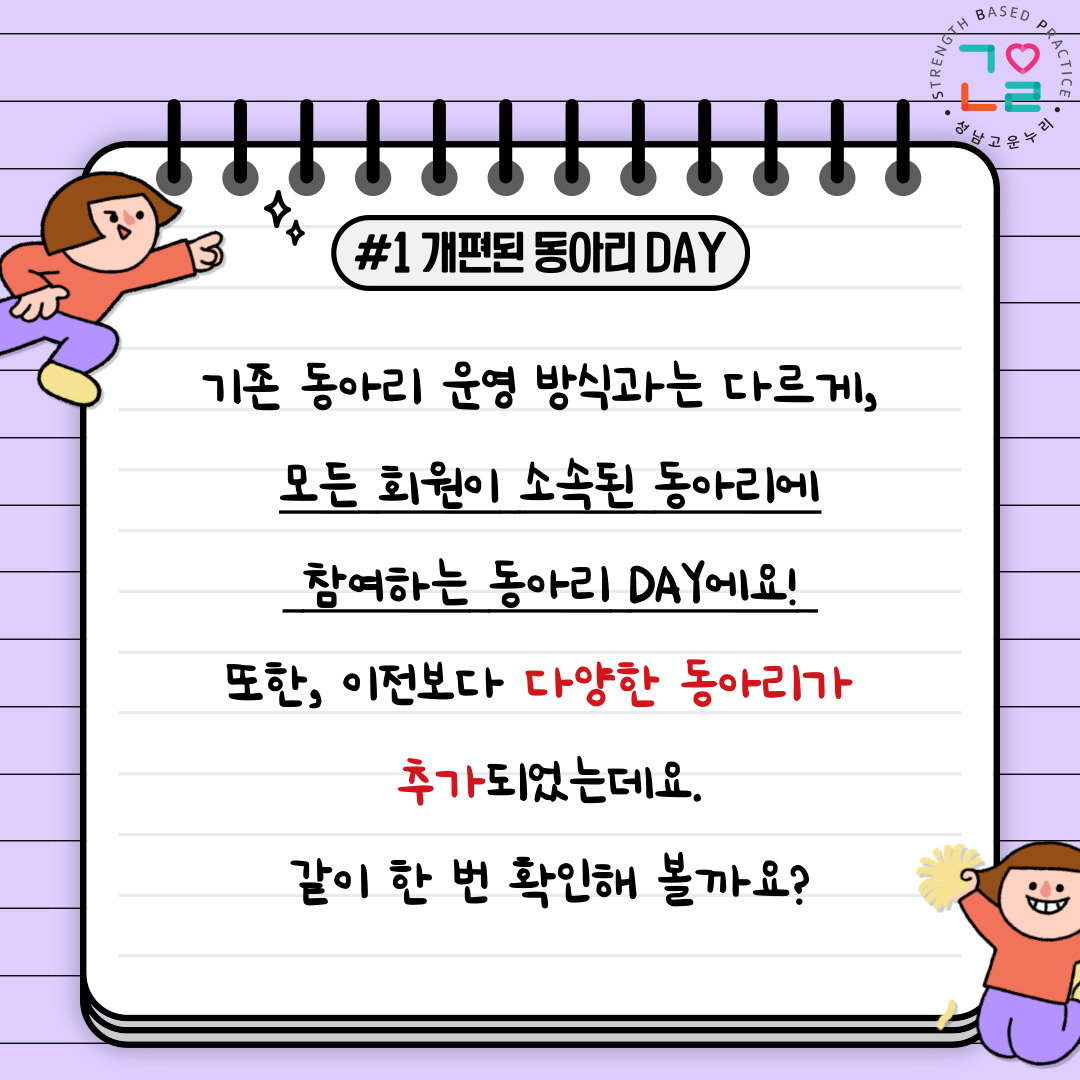 STRENGTH BASED PRACTICE
성남고운누리
#1 개편된 동아리 DAY
기존 동아리 운영 방식과는 다르게,
모든 회원이 소속된 동아리에
참여하는 동아리 DAY에요!
또한, 이전보다 다양한 동아리가
추가되었는데요.
같이 한 번 확인해 볼까요?